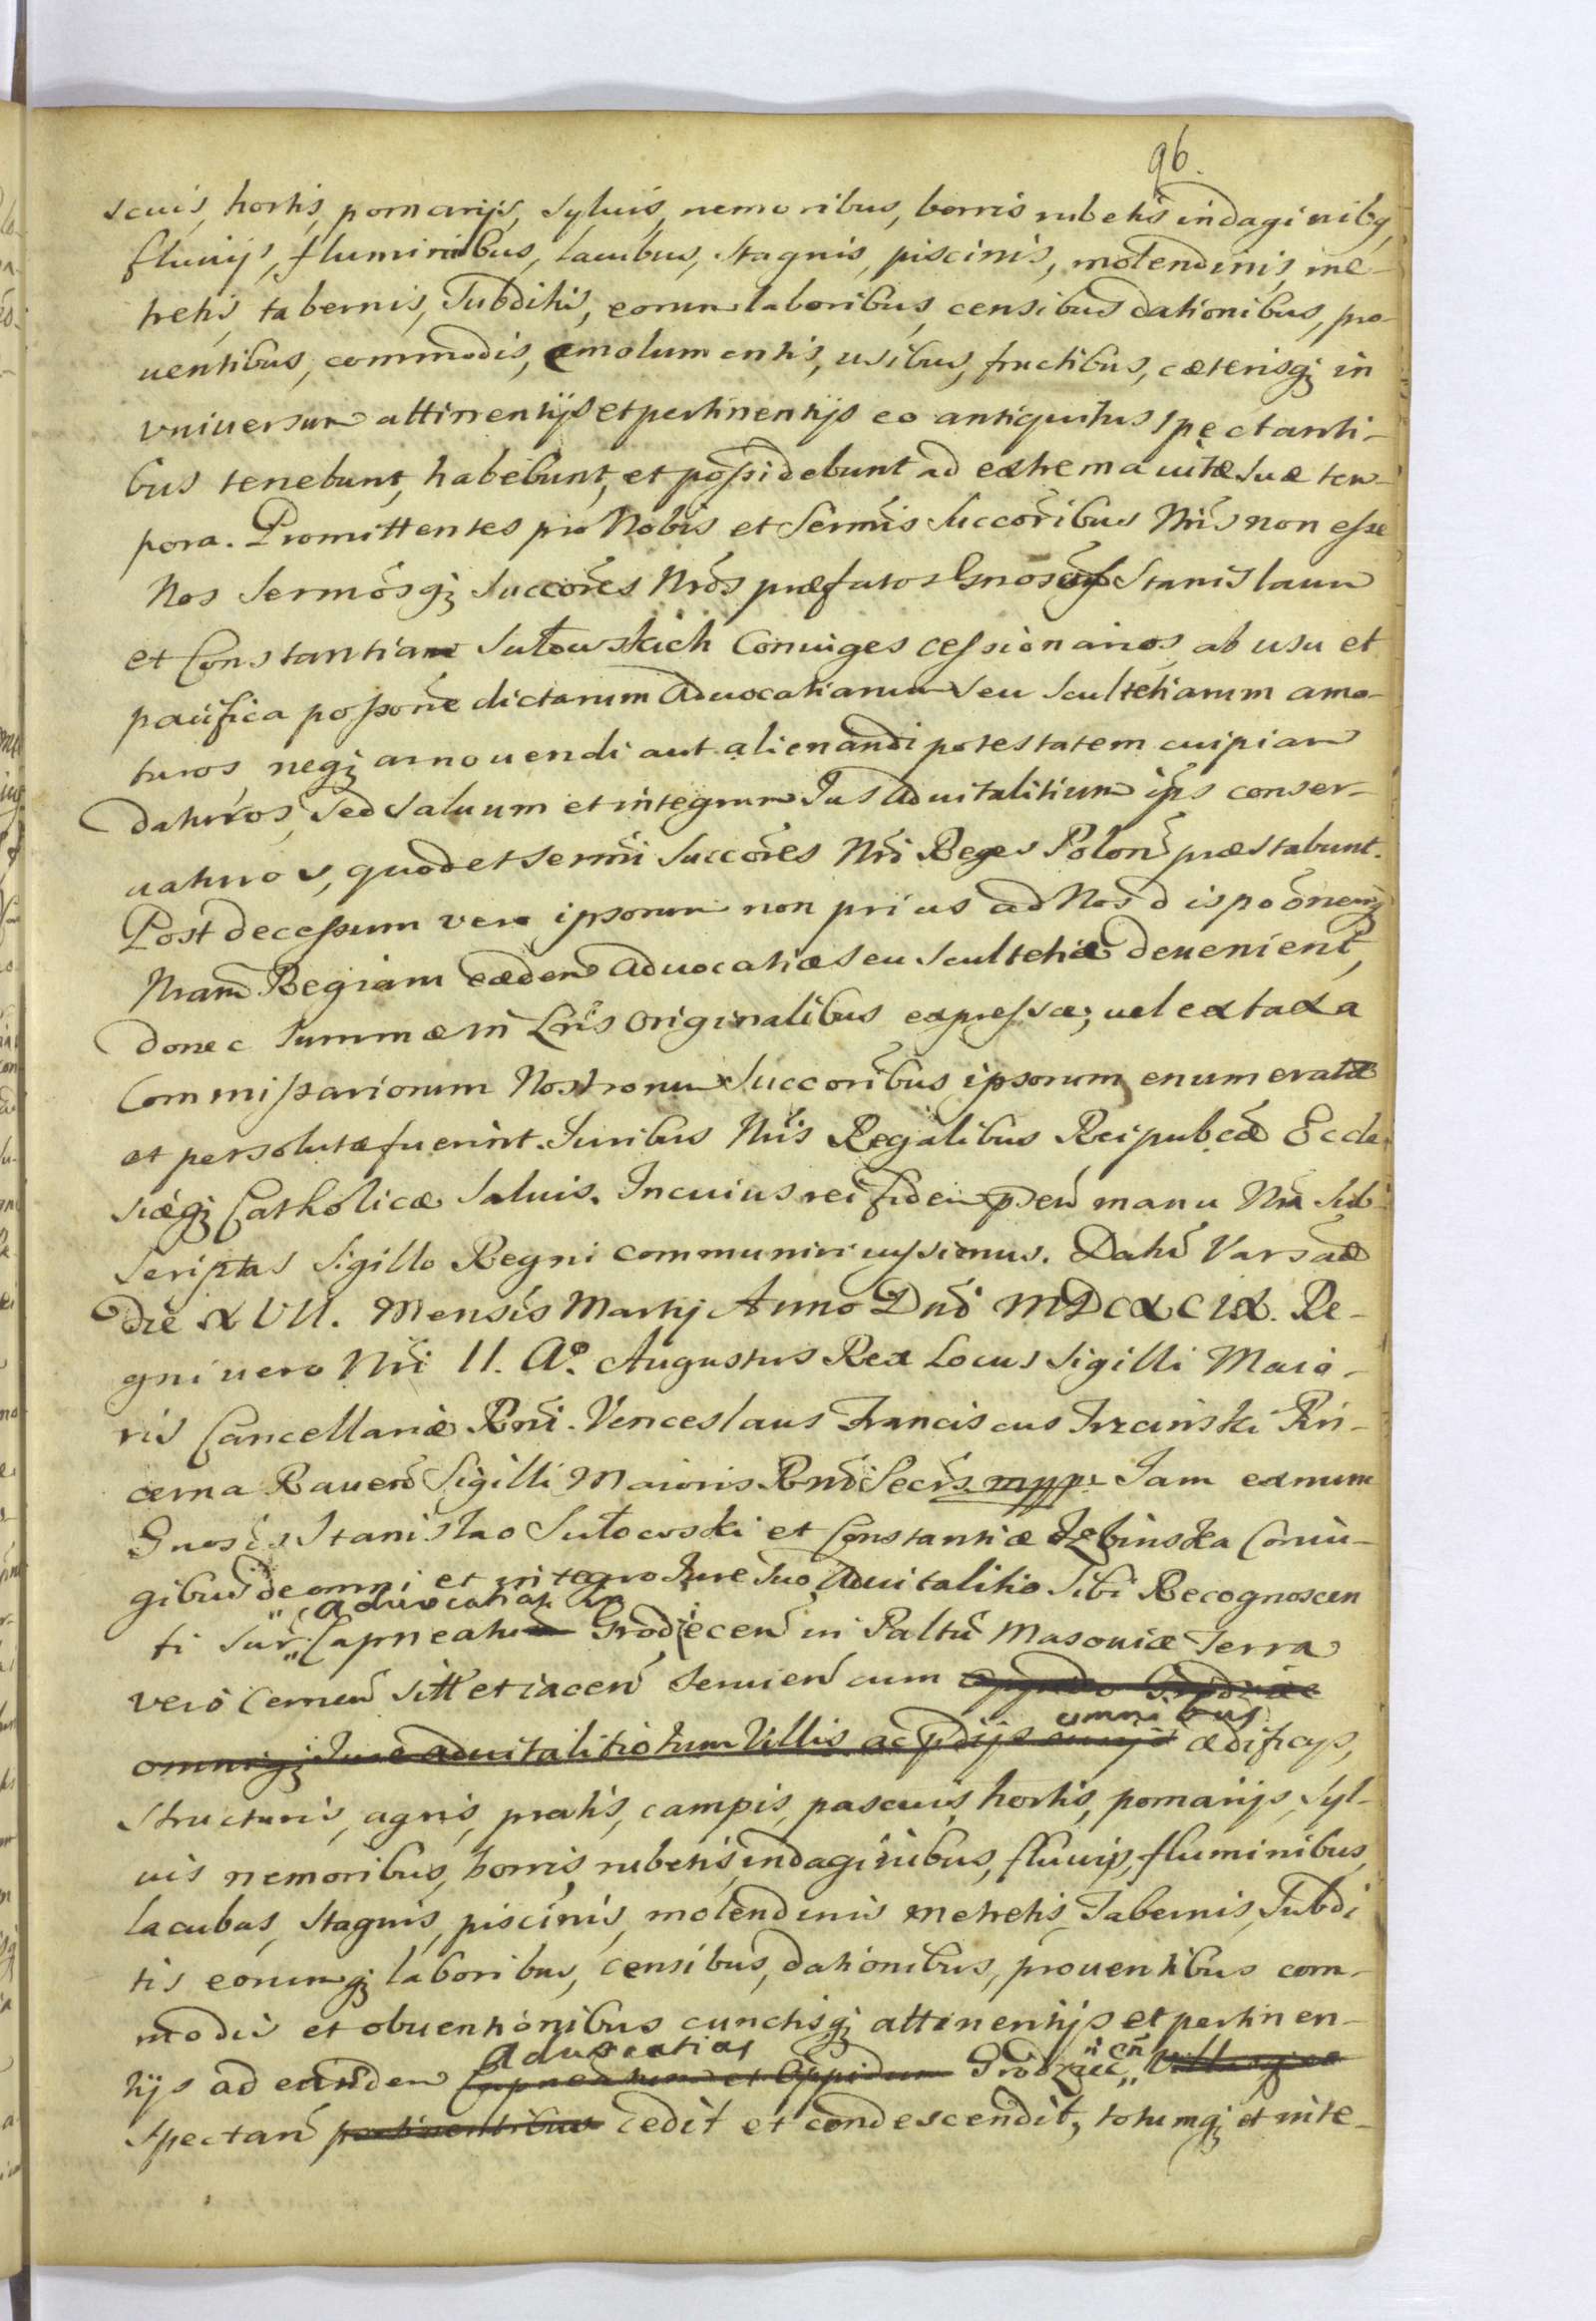 96.
scuis, hortis, pomarijs, syluis, nemoribus, borris rubetis indaginibq,
fluuijs, fluminibus, lacubus, stagnis, piscinis, molendinis, me-
tretis, tabernis, Subditis, eorum laboribus, censibus dationibus, pro-
uentibus, commodis, emolumentis, usibus, fructibus, cæterisq; in
vniuersum attinentijs et pertinentijs eo antiquitus spectanti-
bus tenebunt, habebunt, et possidebunt ad extrema uitæ suæ tem-
pora. Promittentes pro Nobis et Sermis Succoribus Nris non esse
Nos Sermosq; Succores Nros præfatos Gnosos Stanislaum
et Constantiam Sułowskich Coniuges cessionarios, ab usu et
pacifica possone dictarum Aduocatiarum seu Scultetiarum amo-
turos neq; amouendi aut alienandi potestatem cuipiam
daturos, sed saluum et integrum Jus Aduitalitium ips conser-
uaturos, quod et Sermi Succores Nri Reges Polon præstabunt.
Post decessum vero ipsorum non prius ad Nos dispoonemq;
Nram Regiam eædem Aduocatiæ seu Scultetiæ deuenient,
donec Summæ in Lris Originalibus expressæ, uel ex taxa
Commissariorum Nostrorum Succoribus ipsorum enumeratæ
et persolutæ fuerint. Juribus Nris Regalibus Reipubcæ Eccle-
siæq; Catholicæ Saluis. In cuius rei fidem psen manu Nra Sub-
scriptas Sigillo Regni communiri iussimus. Dat Varsaæ
die XVII. Mensis Martij Anno Dni MDCXCIX. Re-
gni uero Nri II. Aº. Augustus Rex Locus Sigilli Maio-
ris Cancellariæ Rni. Venceslaus Franciscus Trzcinski Pin-
cerna Rauen Sigilli Maioris Rni Secrs mpp. Jam ex nunc
Gnosis Stanislao Sułowski et Constantiæ Coniu-
gibus de omni et integro Jure suo Aduitalitio Sibi Recognoscen
ti Sur aduocatias Capneatu Grodiecen in Paltu Masouiæ Terra
vero Cernen sitt et iacen Seruien cum oppido Grodziec
omniq; Jure aduitalitio tum Villis ac pdijs omnibus ædificijs,
structuris, agris, pratis, campis, pascuis, hortis, pomarijs, Syl-
uis nemoribus, borris, rubetis, indaginibus, fluuijs, fluminibus,
lacubus, stagnis, piscinis, molendinis metretis, Tabernis, Subdi
tis eorumq; laboribus, Censibus, dationibus, prouentibus com-
modis et obuentionibus cunctisq; attinentijs et pertinen-
tijs ad eandem Aduocatias Capneatum et Oppidum Grodziecen Villasq;
spectan pertinentibus cedit et condescendit, totumq; et inte-